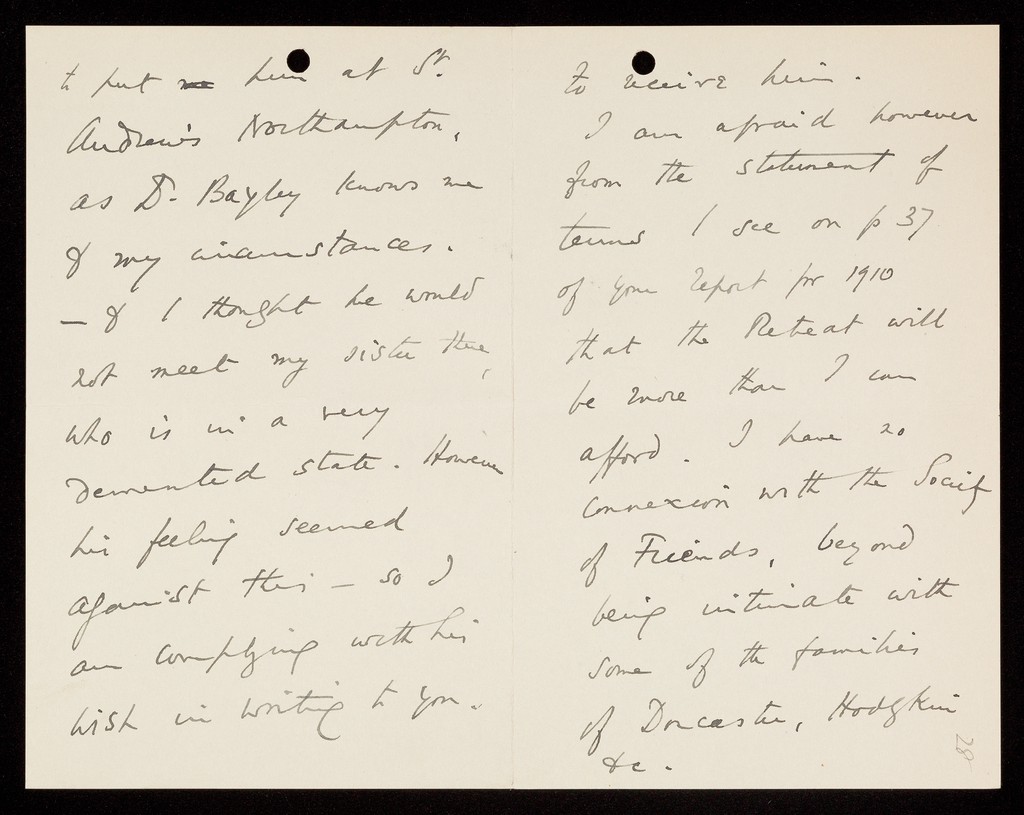 to put me him at St.
Andrew's Northampton,
as Dr. Bayley knows me
& my circumstances.
— & I thought he would
not meet my sister there,
who is in a very
demented state. However
his feeling seemed
against this — so I
am complying with his
wish in writing to you.
to receive him.
I am afraid however
from the statement of
terms I see on p 37
of your report for 1910
that the Retreat will
be more than I can
afford. I have no
connexion with the Society
of Friends, beyond
being intimate with
some of the families
of Doncaster, Hodgkin
&c.
28